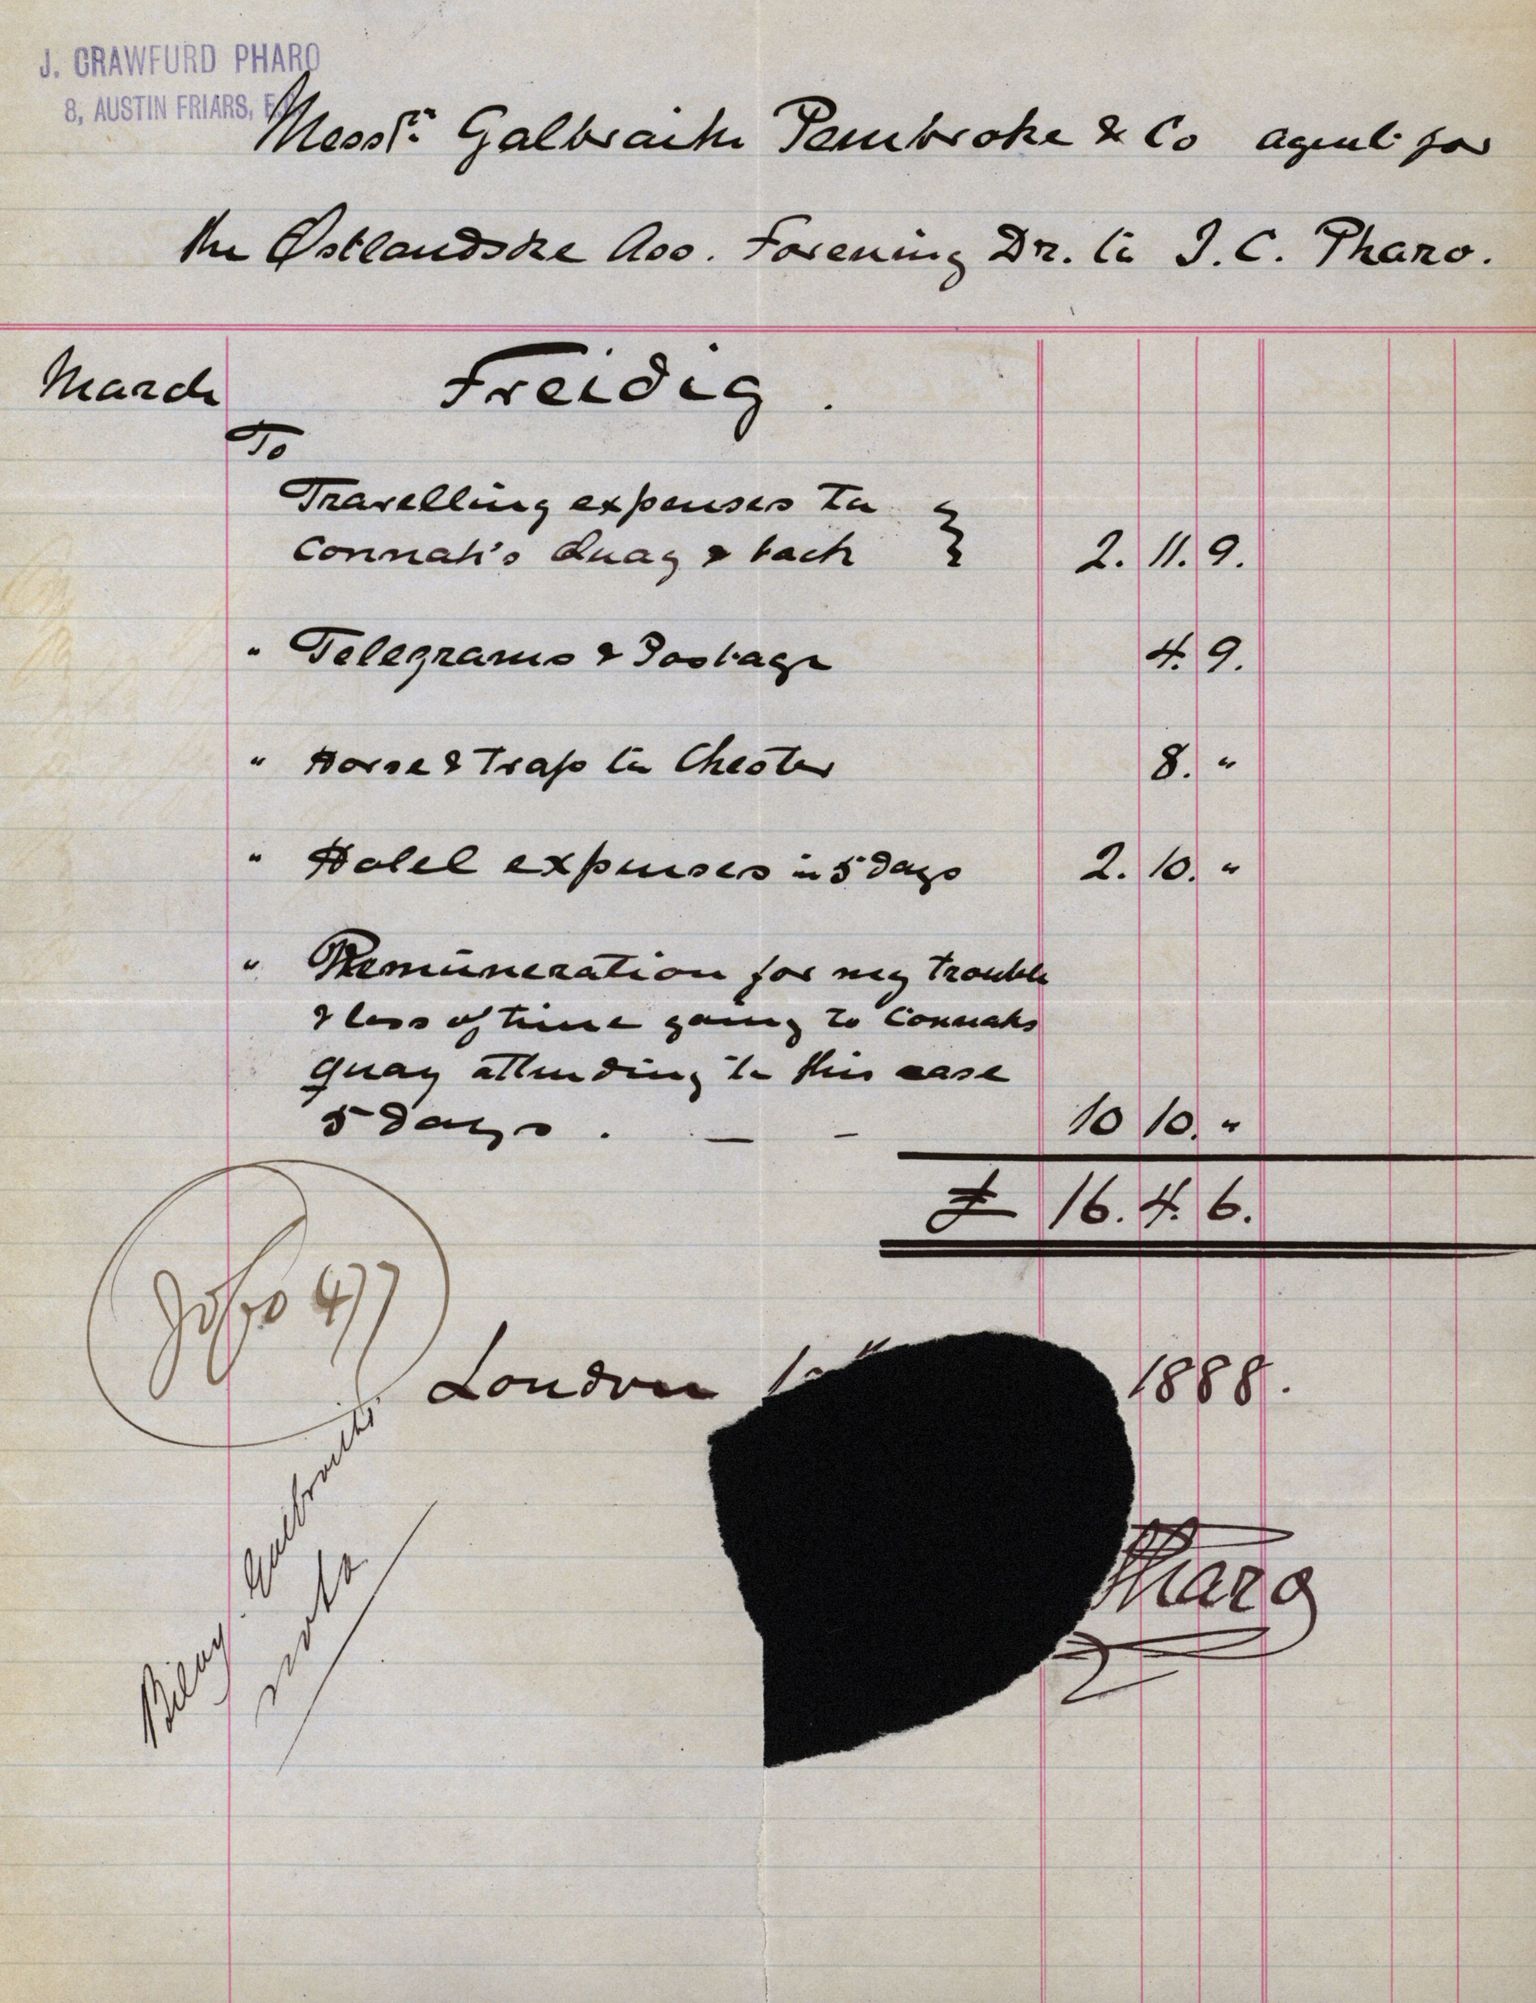 J. CRAWFURD PHARO
8, AUSTIN FRIARS, E.C.
Messrs. Galbraith Pembroke & Co agents for
the Østlandske Ass. Forening Dr. to J. C. Pharo.
March Freidig.
To
Travelling expenses to
Connah's Quay & back 2. 11. 9.
" Telegrams & Postage 4. 9.
" Horse & Trap to Chester 8. "
" Hotel expenses in 5 days 2. 10. "
" Remuneration for my trouble
& loss of time going to Connahs
Quay attending to this case
5 days. — — 10 10. "
£ 16. 4. 6.
477
London 1888.
Pharo
Bilag Galbraiths
nota